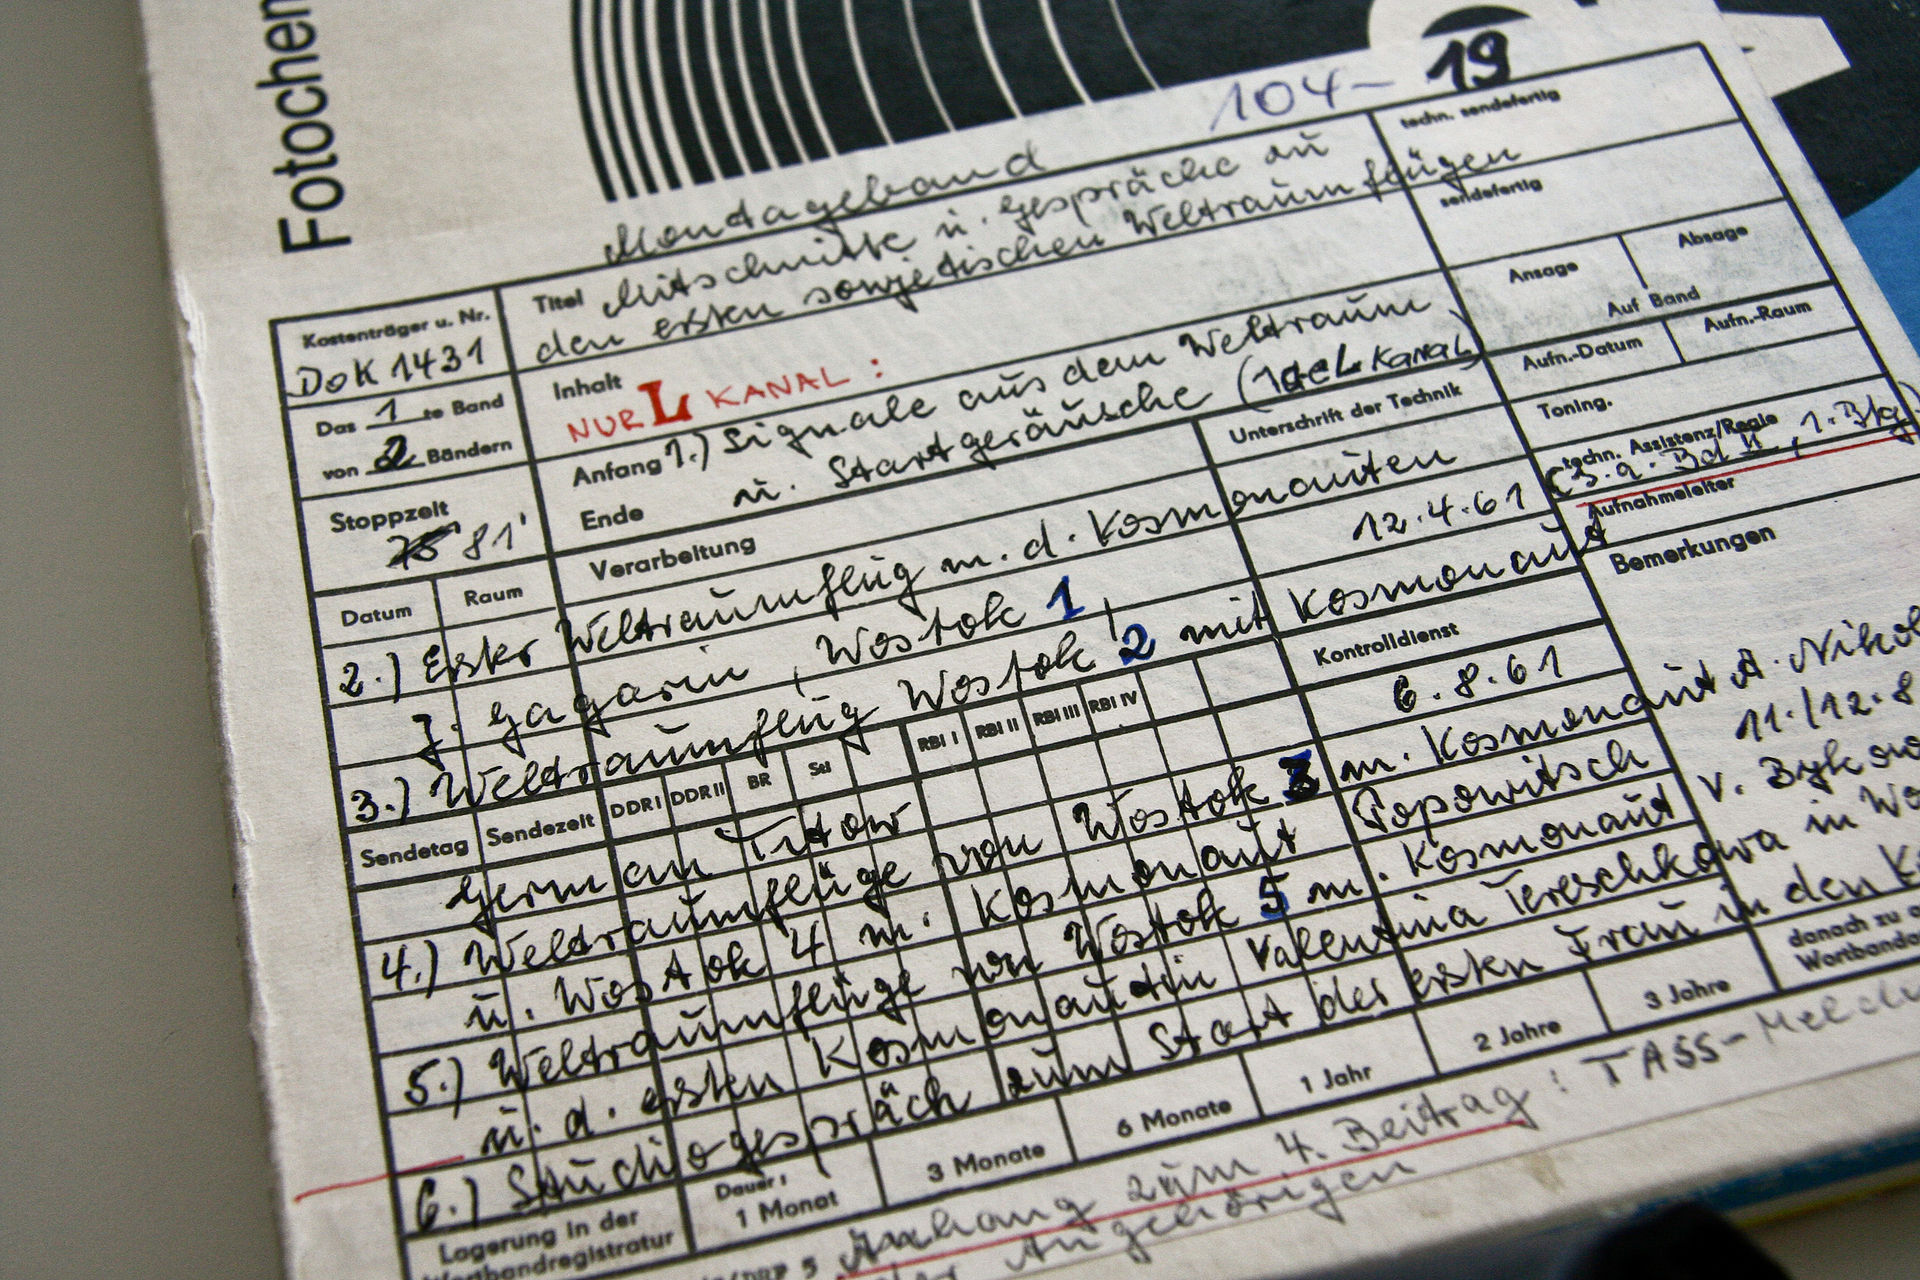 Fotochem
104-19
Montageband
Titel Mitschnitte u. Gespräche zu
den ersten sowjetischen Weltraumflügen
techn. sendefertig
sendefertig
Ansage
Absage
Auf Band
Aufn.-Datum
Aufn.-Raum
Toning.
techn. Assistenz/Regie
(s.a. Bd II, 1. Btg)
Aufnahmeleiter
Bemerkungen
Kostenträger u. Nr.
DOK 1431
Das 1 te Band
von 2 Bändern
Stoppzeit
75' 81'
Datum
Raum
Inhalt
NUR L KANAL:
Anfang 1.) Signale aus dem Weltraum
Ende u. Startgeräusche
Unterschrift der Technik
Verarbeitung
2.) Erster Weltraumflug m. d. Kosmonauten
J. Gagarin, Wostok 1 12.4.61
3.) Weltraumflug Wostok 2 mit Kosmonaut
Kontrolldienst
Sendetag
Sendezeit
DDR I
DDR II
BR
RBI I
RBI II
RBI III
RBI IV
German Titow 6.8.61
4.) Weltraumflüge von Wostok 3 m. Kosmonaut A. Nikol
u. Wostok 4 m. Kosmonaut Popowitsch 11./12.8
5.) Weltraumflüge von Wostok 5 m. Kosmonaut V. Bykow
u. d. ersten Kosmonautin Valentina Tereschkowa in Wo
6.) Studiogespräch zum Start der ersten Frau in den K
Lagerung in der
Wortbandregistratur
Dauer:
1 Monat
3 Monate
6 Monate
1 Jahr
2 Jahre
3 Jahre
danach zu
Wortbanda
Anhang zum 4. Beitrag: TASS-Meldu
der Angehörigen